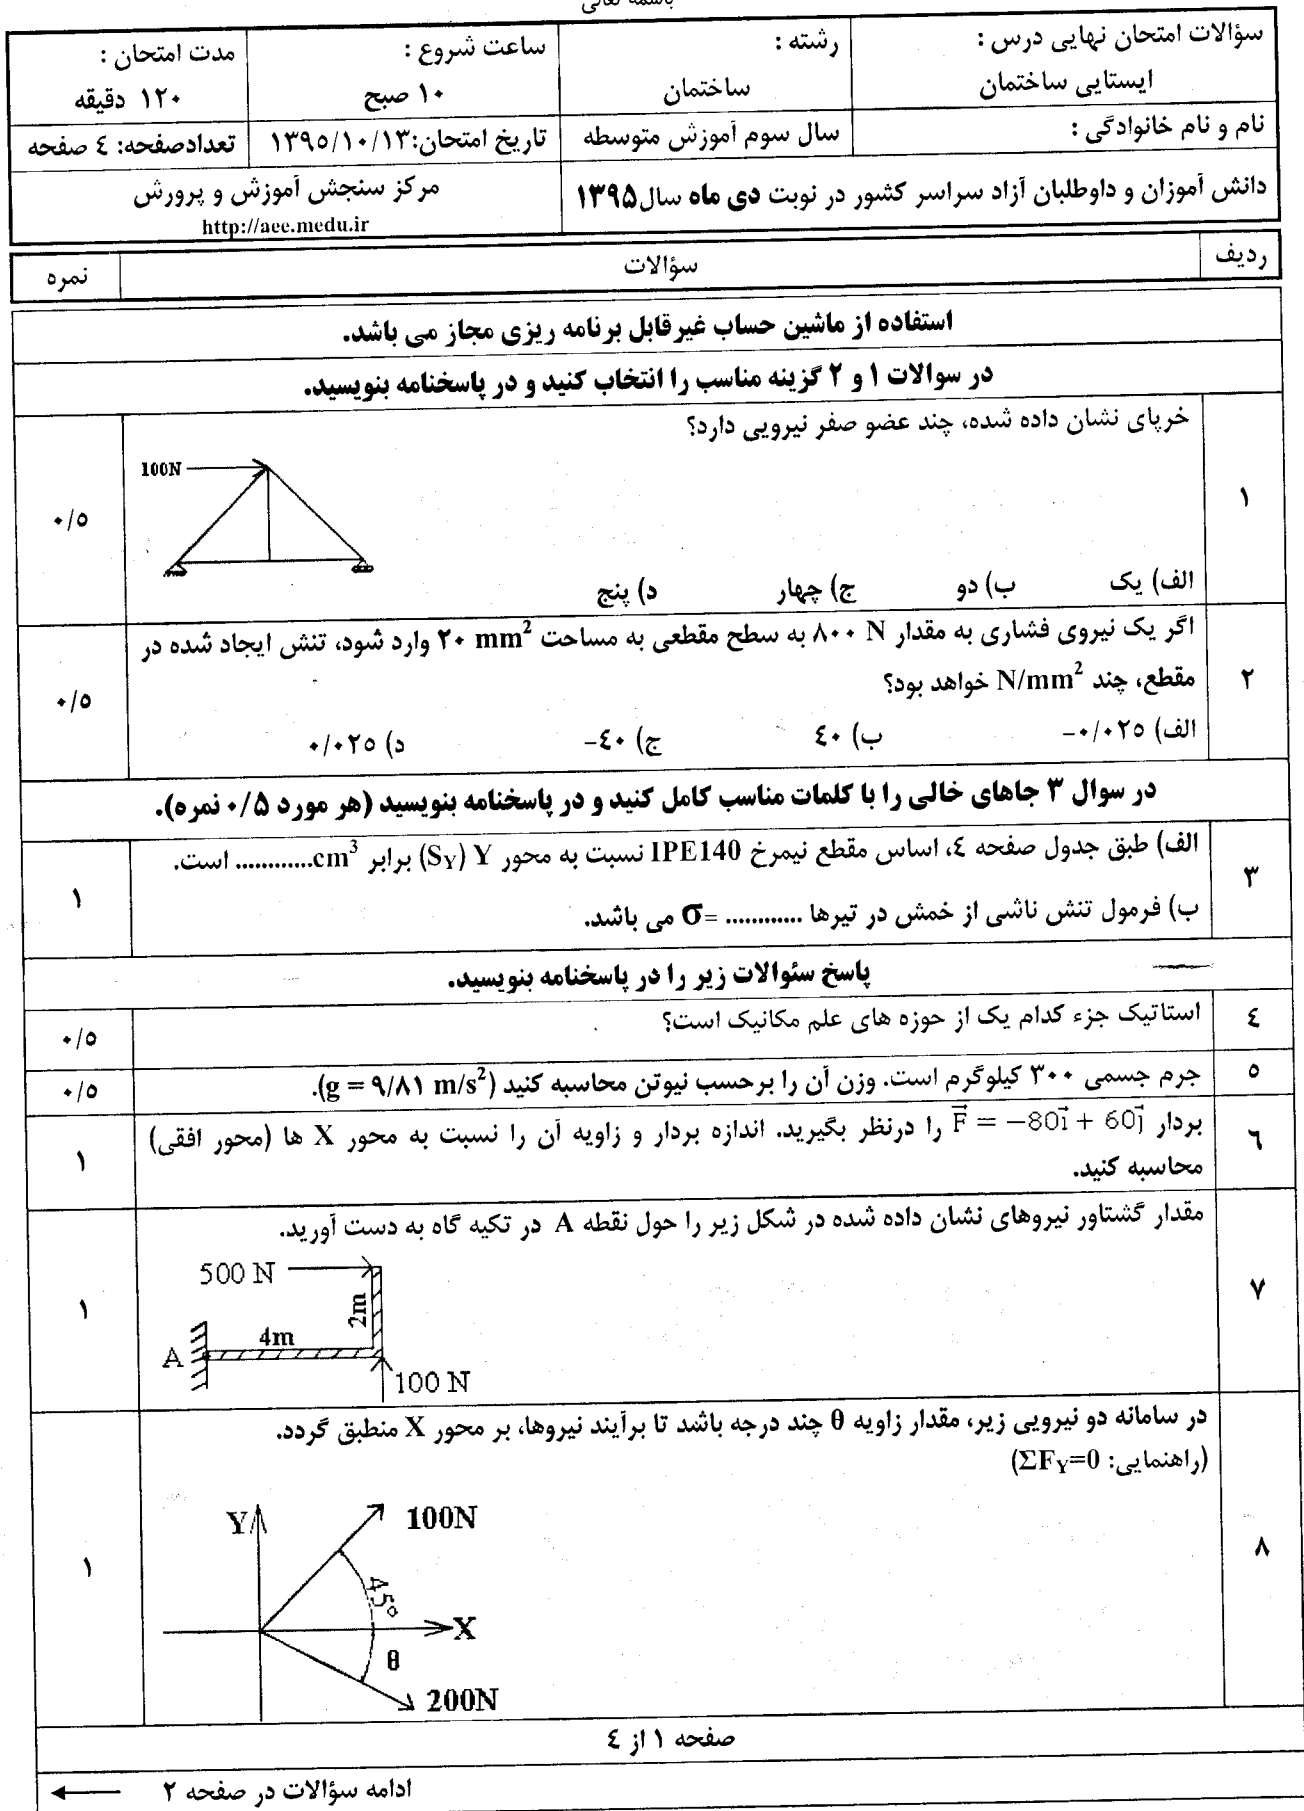 باسمه تعالی
سؤالات امتحان نهایی درس :
ایستایی ساختمان
رشته :
ساختمان
ساعت شروع :
۱۰ صبح
مدت امتحان :
۱۲۰ دقیقه
نام و نام خانوادگی :
سال سوم آموزش متوسطه
تاریخ امتحان:۱۳۹۵/۱۰/۱۳
تعدادصفحه: ٤ صفحه
دانش آموزان و داوطلبان آزاد سراسر کشور در نوبت دی ماه سال۱۳۹۵
مرکز سنجش آموزش و پرورش
http://aee.medu.ir
ردیف
سؤالات
نمره
استفاده از ماشین حساب غیرقابل برنامه ریزی مجاز می باشد.
در سوالات ۱ و ۲ گزینه مناسب را انتخاب کنید و در پاسخنامه بنویسید.
۱
خرپای نشان داده شده، چند عضو صفر نیرویی دارد؟
100N
الف) یک ب) دو ج) چهار د) پنج
۰/۵
۲
اگر یک نیروی فشاری به مقدار ۸۰۰ N به سطح مقطعی به مساحت ۲۰ mm² وارد شود، تنش ایجاد شده در
مقطع، چند N/mm² خواهد بود؟
الف) ۰/۰۲۵− ب) ٤۰ ج) ٤۰− د) ۰/۰۲۵
۰/۵
در سوال ۳ جاهای خالی را با کلمات مناسب کامل کنید و در پاسخنامه بنویسید (هر مورد ۰/۵ نمره).
۳
الف) طبق جدول صفحه ٤، اساس مقطع نیمرخ IPE140 نسبت به محور Y (S_Y) برابر cm³............ است.
ب) فرمول تنش ناشی از خمش در تیرها ............ =σ می باشد.
۱
پاسخ سئوالات زیر را در پاسخنامه بنویسید.
٤
استاتیک جزء کدام یک از حوزه های علم مکانیک است؟
۰/۵
۵
جرم جسمی ۳۰۰ کیلوگرم است. وزن آن را برحسب نیوتن محاسبه کنید (g = ۹/۸۱ m/s²).
۰/۵
٦
بردار F⃗ = −80i⃗ + 60j⃗ را درنظر بگیرید. اندازه بردار و زاویه آن را نسبت به محور X ها (محور افقی)
محاسبه کنید.
۱
۷
مقدار گشتاور نیروهای نشان داده شده در شکل زیر را حول نقطه A در تکیه گاه به دست آورید.
500 N
2m
4m
A
100 N
۱
۸
در سامانه دو نیرویی زیر، مقدار زاویه θ چند درجه باشد تا برآیند نیروها، بر محور X منطبق گردد.
(راهنمایی: ΣF_Y=0)
Y
100N
45°
X
θ
200N
۱
صفحه ۱ از ٤
ادامه سؤالات در صفحه ۲